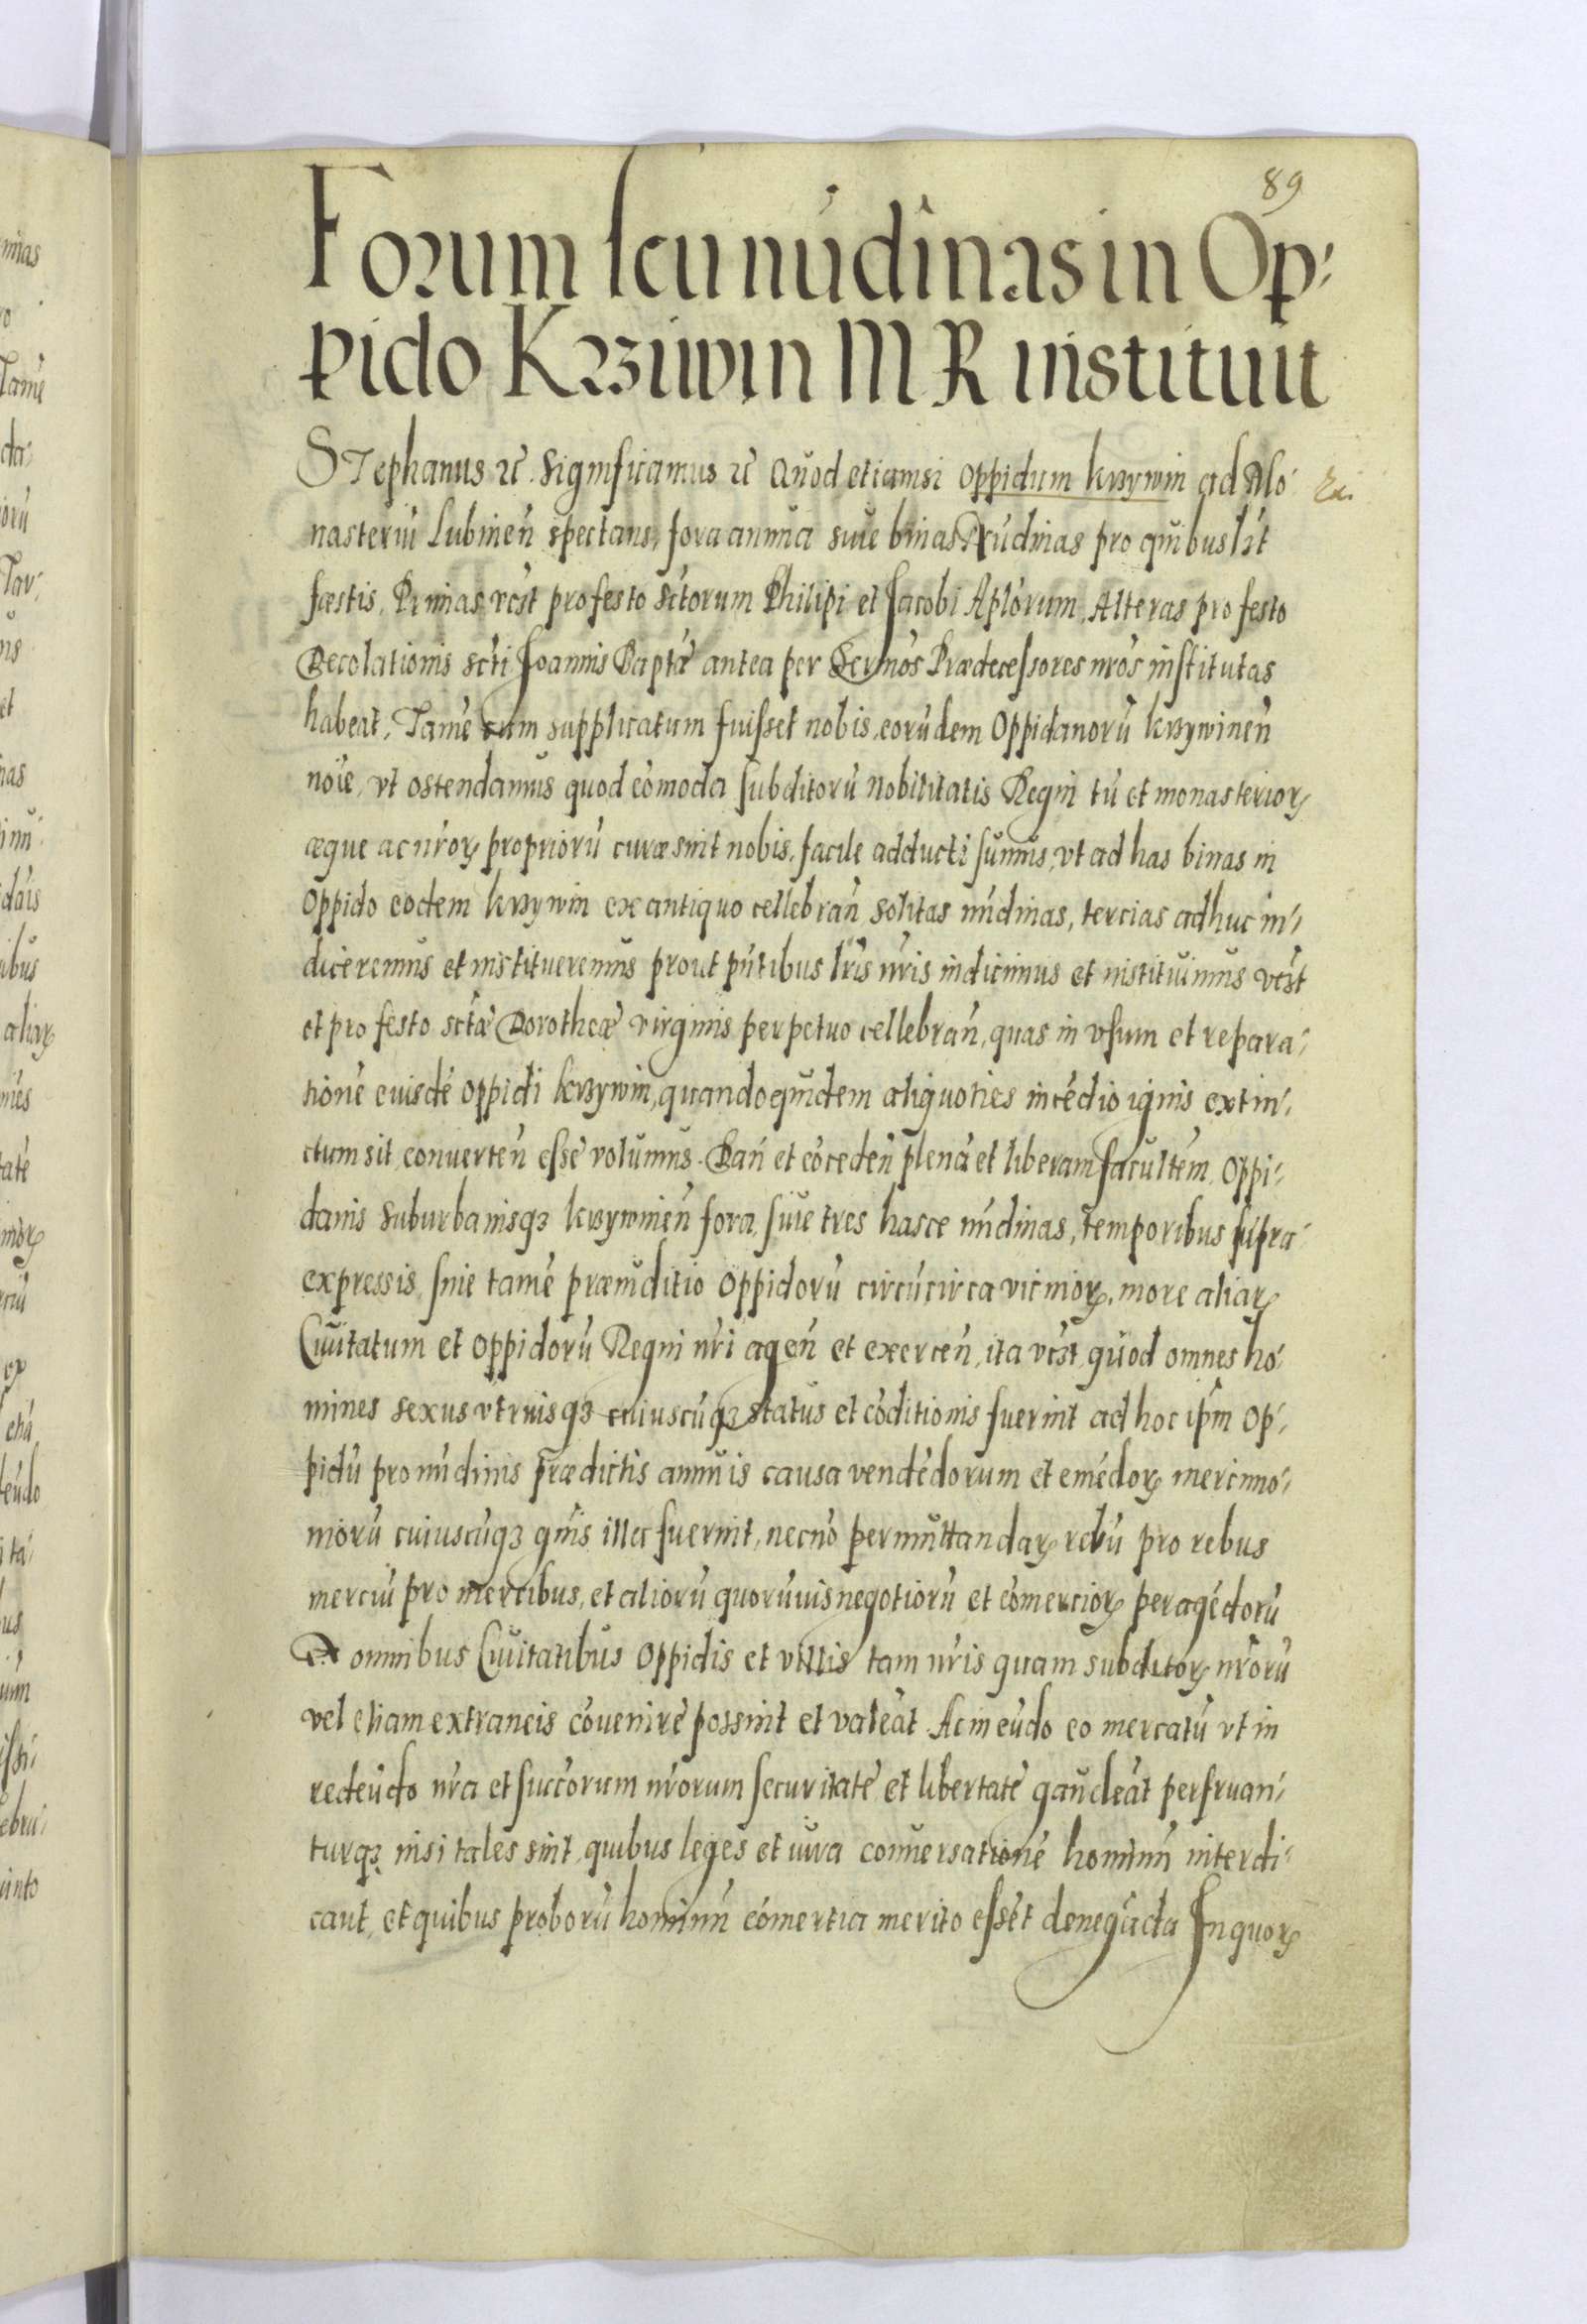 89
Forum seu nudinas in Op-
pido Krziwin M R instituit
Stephanus etc. Significamus etc Quod etiamsi oppidum krzywin ad Mo-
nasteriu Lubinen spectans, fora annua siue binas nudinas pro quibuslt
fæstis, Primas vcst pro festo sctorum Philipi et Jacobi Aplorum, Alteras pro festo
Decolationis scti Joannis Baptæ antea per Sermos Prædecessores nros institutas
habeat, Tame cum supplicatum fuisset nobis, eorudem Oppidanoru krzywinen
noie, vt ostendamus quod comoda subditoru nobilitatis Regni tu et monasterioꝝ
æque ac nroꝝ proprioru curæ sint nobis, facile adducti sumus, vt ad has binas in
Oppido eodem krzywin ex antiquo cellebran solitas nudinas, tercias adhuc in-
diceremus et institueremus prout pntibus lris nris indicimus et instituimus vcst
et pro festo sctæ Dorotheæ virginis perpetuo cellebran, quas in vsum et repara-
tione euisde oppidi krzywin, quandoquidem aliquoties incedio ignis extin-
ctum sit, conuerten esse volumus. Dan et coceden plena et liberam facultem, Oppi-
danis suburbanisqꝫ krzywinen fora, siue tres hasce nudinas, temporibus supra
expressis, sine tame præiuditio oppidoru circucirca vicinioꝝ, more aliaꝝ
Ciuitatum et oppidoru Regni nri agen et exercen, ita vcst, quod omnes ho-
mines sexus vtriusqꝫ cuiuscuqꝫ status et coditionis fuerint ad hoc ipm Op-
pidu pro nudinis prædictis annuis causa vendedorum et emedoꝝ mercimo-
nioru cuiuscuqꝫ gnis illa fuerint, necno permuttandaꝝ reru pro rebus
merciu pro mercibus, et alioru quoruuis negotioru et comercioꝝ peragedoru
Ex omnibus Ciuitatibus Oppidis et villis tam nris quam subditoꝝ nroru
vel etiam extraneis couenire possint et valeat. Ac in eudo eo mercatu vt in
redeudo nra et succorum nrorum securitate et libertate gaudeat perfruan-
turqꝫ nisi tales sint, quibus leges et iura conuersatione hominu interdi-
cant, et quibus proboru hominu comertia merito esset denegada In quoꝝ